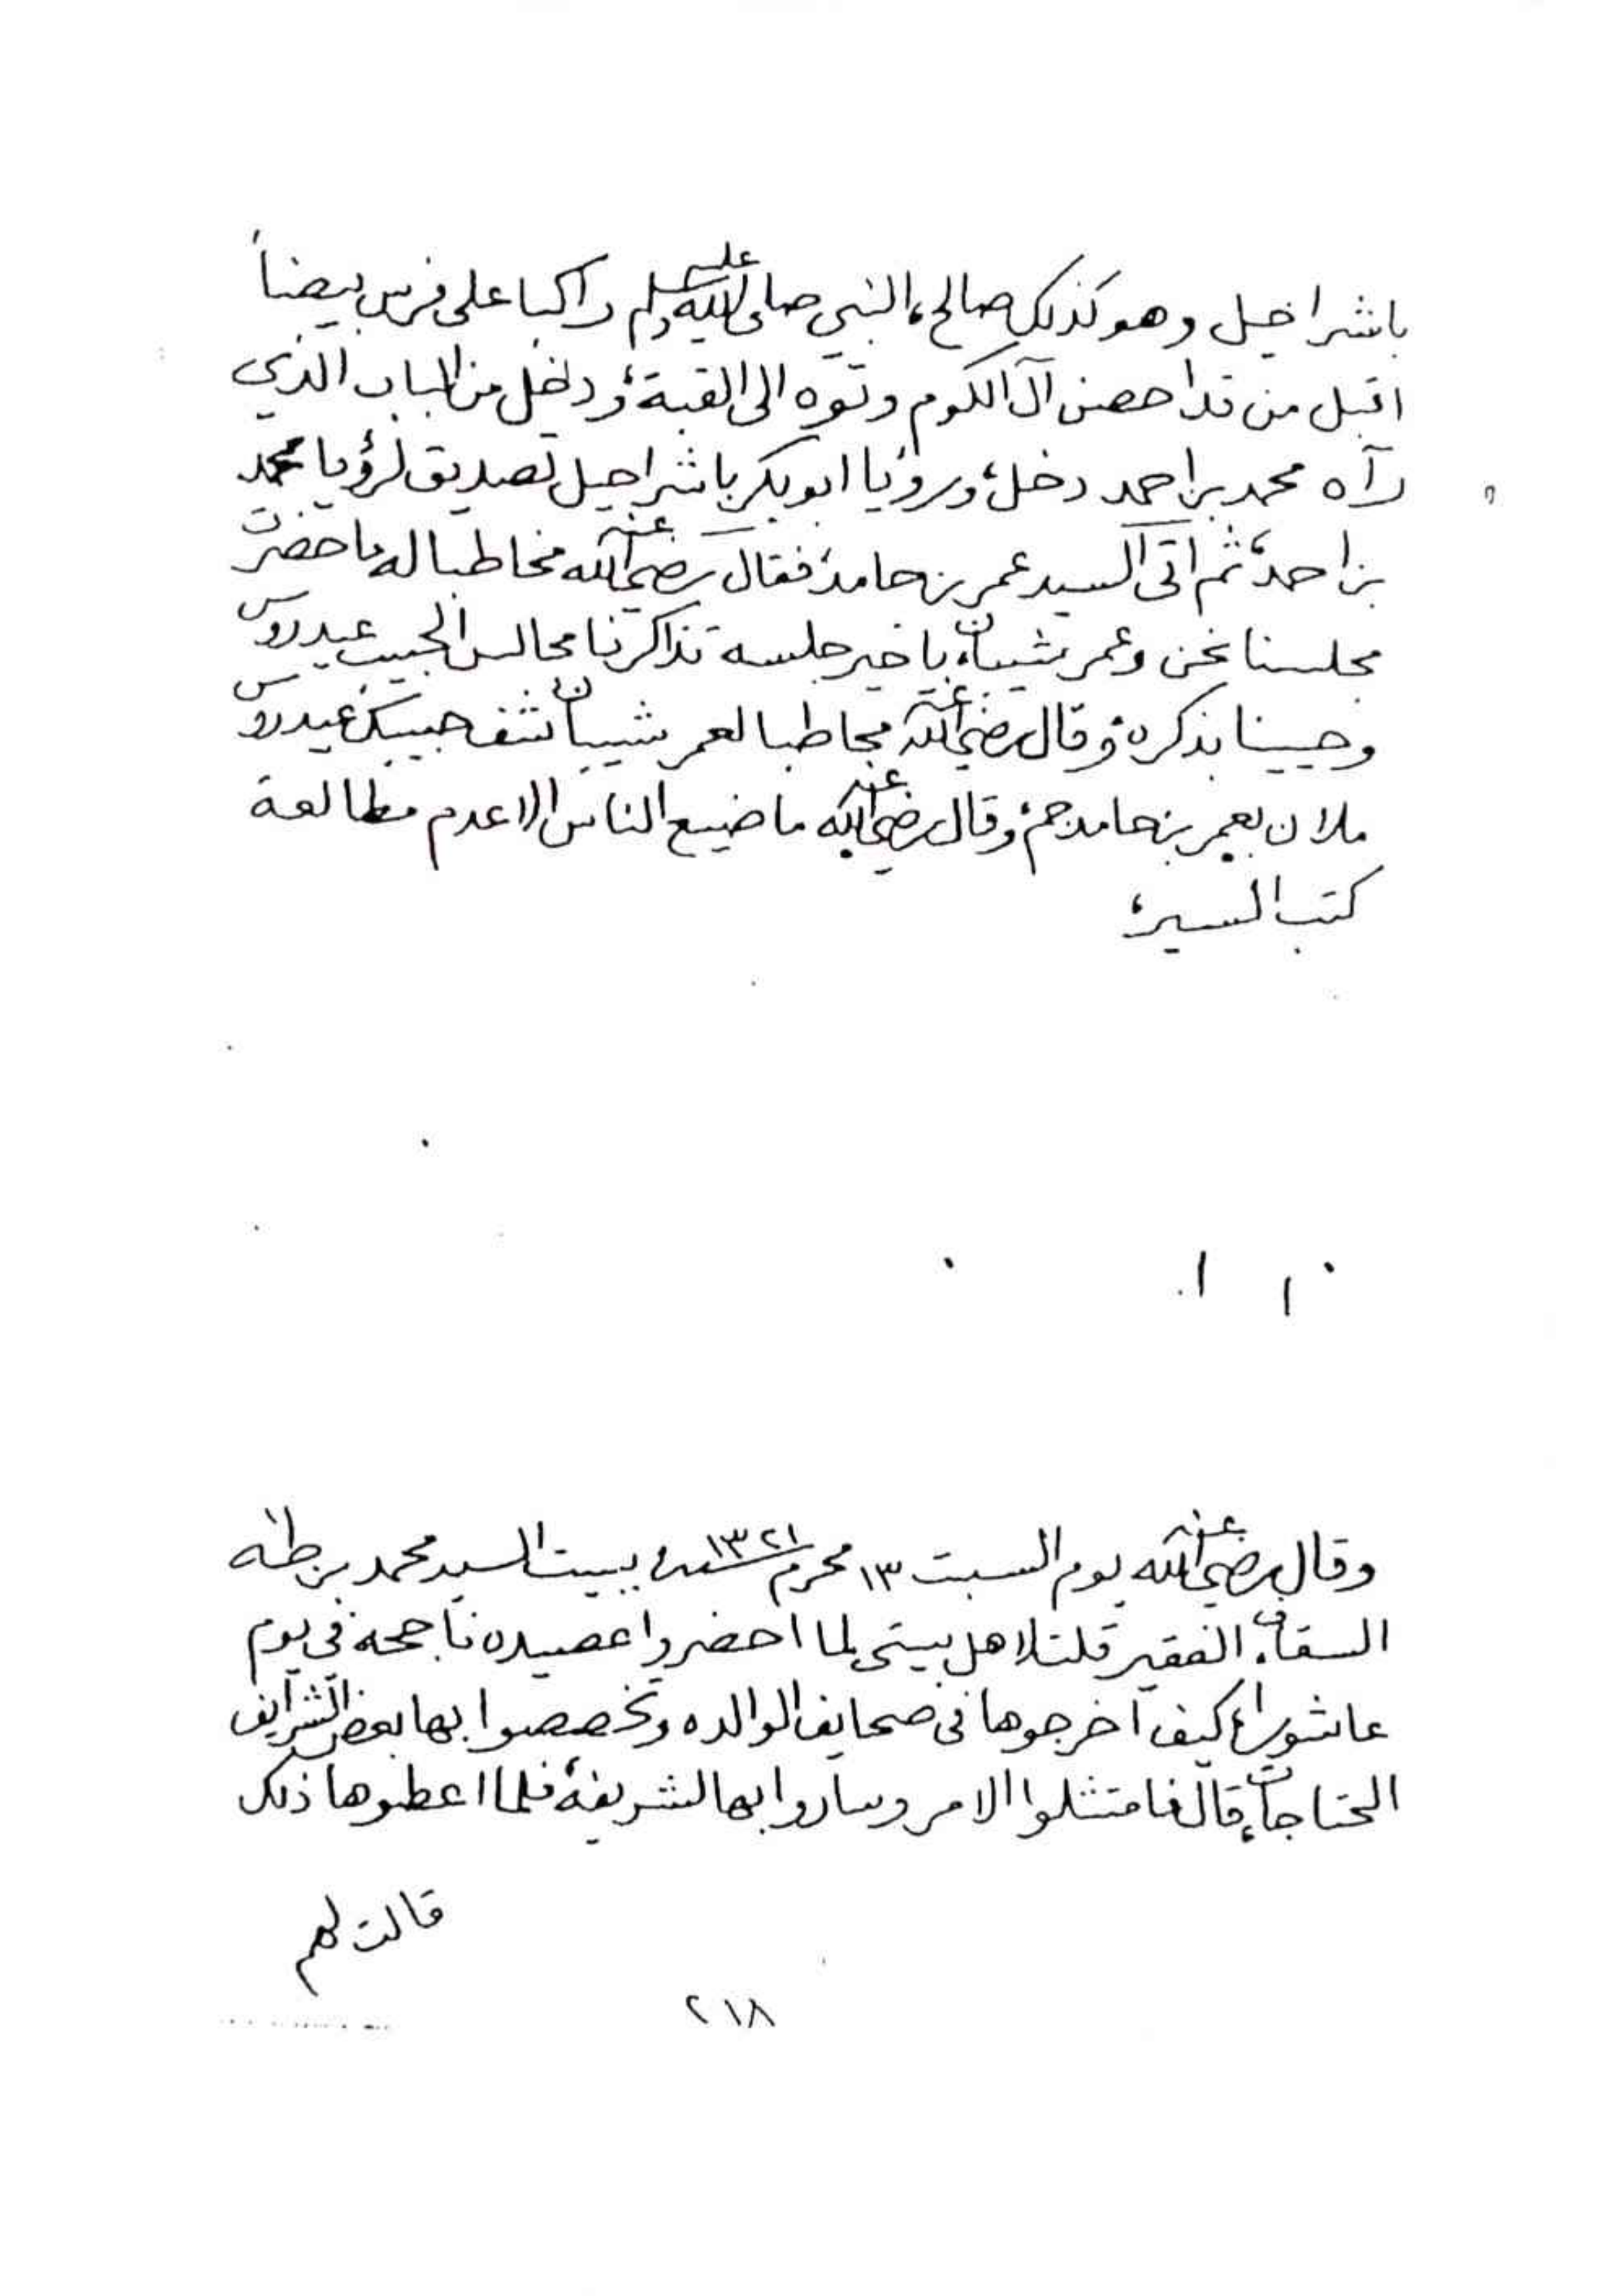 باشراحيل وهو كذلك صالح، النبي صلى الله عليه وسلم راكبا على فرس بيضاً
اقبل من قدا حصن آل الكوم وتوه الى القبة، ودخل من الباب الذي
رآه محمد بن احمد دخل، ورؤيا ابو بكر باشراحيل تصديق لرؤيا محمد
بن احمد، ثم اتى السيد عمر بن حامد، فقال رضي الله عنه مخاطبا له ما حضرت
مجلسنا نحن وعمر شيبان، يا خير جلسه تذاكرنا مجالس الحبيب عيدروس
وحيينا بذكره، وقال رضي الله عنه مخاطبا لعمر شيبان شف حبيبك عيدروس
ملان بعمر بن حامد جم، وقال رضي الله عنه ما ضيع الناس الا عدم مطالعة
كتب السير،
وقال رضي الله عنه يوم السبت ١٣ محرم سنة ١٣٢١ ببيت السيد محمد بن طه
السقاف، الفقير قلت لاهل بيتي لما احضروا عصيده ناجحه في يوم
عاشوراء كيف اخرجوها في صحايف الوالده وتخصصوا بها بعض الشرايف
المحتاجات، قال فامتثلوا الامر وساروا بها لشريفة، فلما اعطوها ذلك
قالت لهم
٢١٨